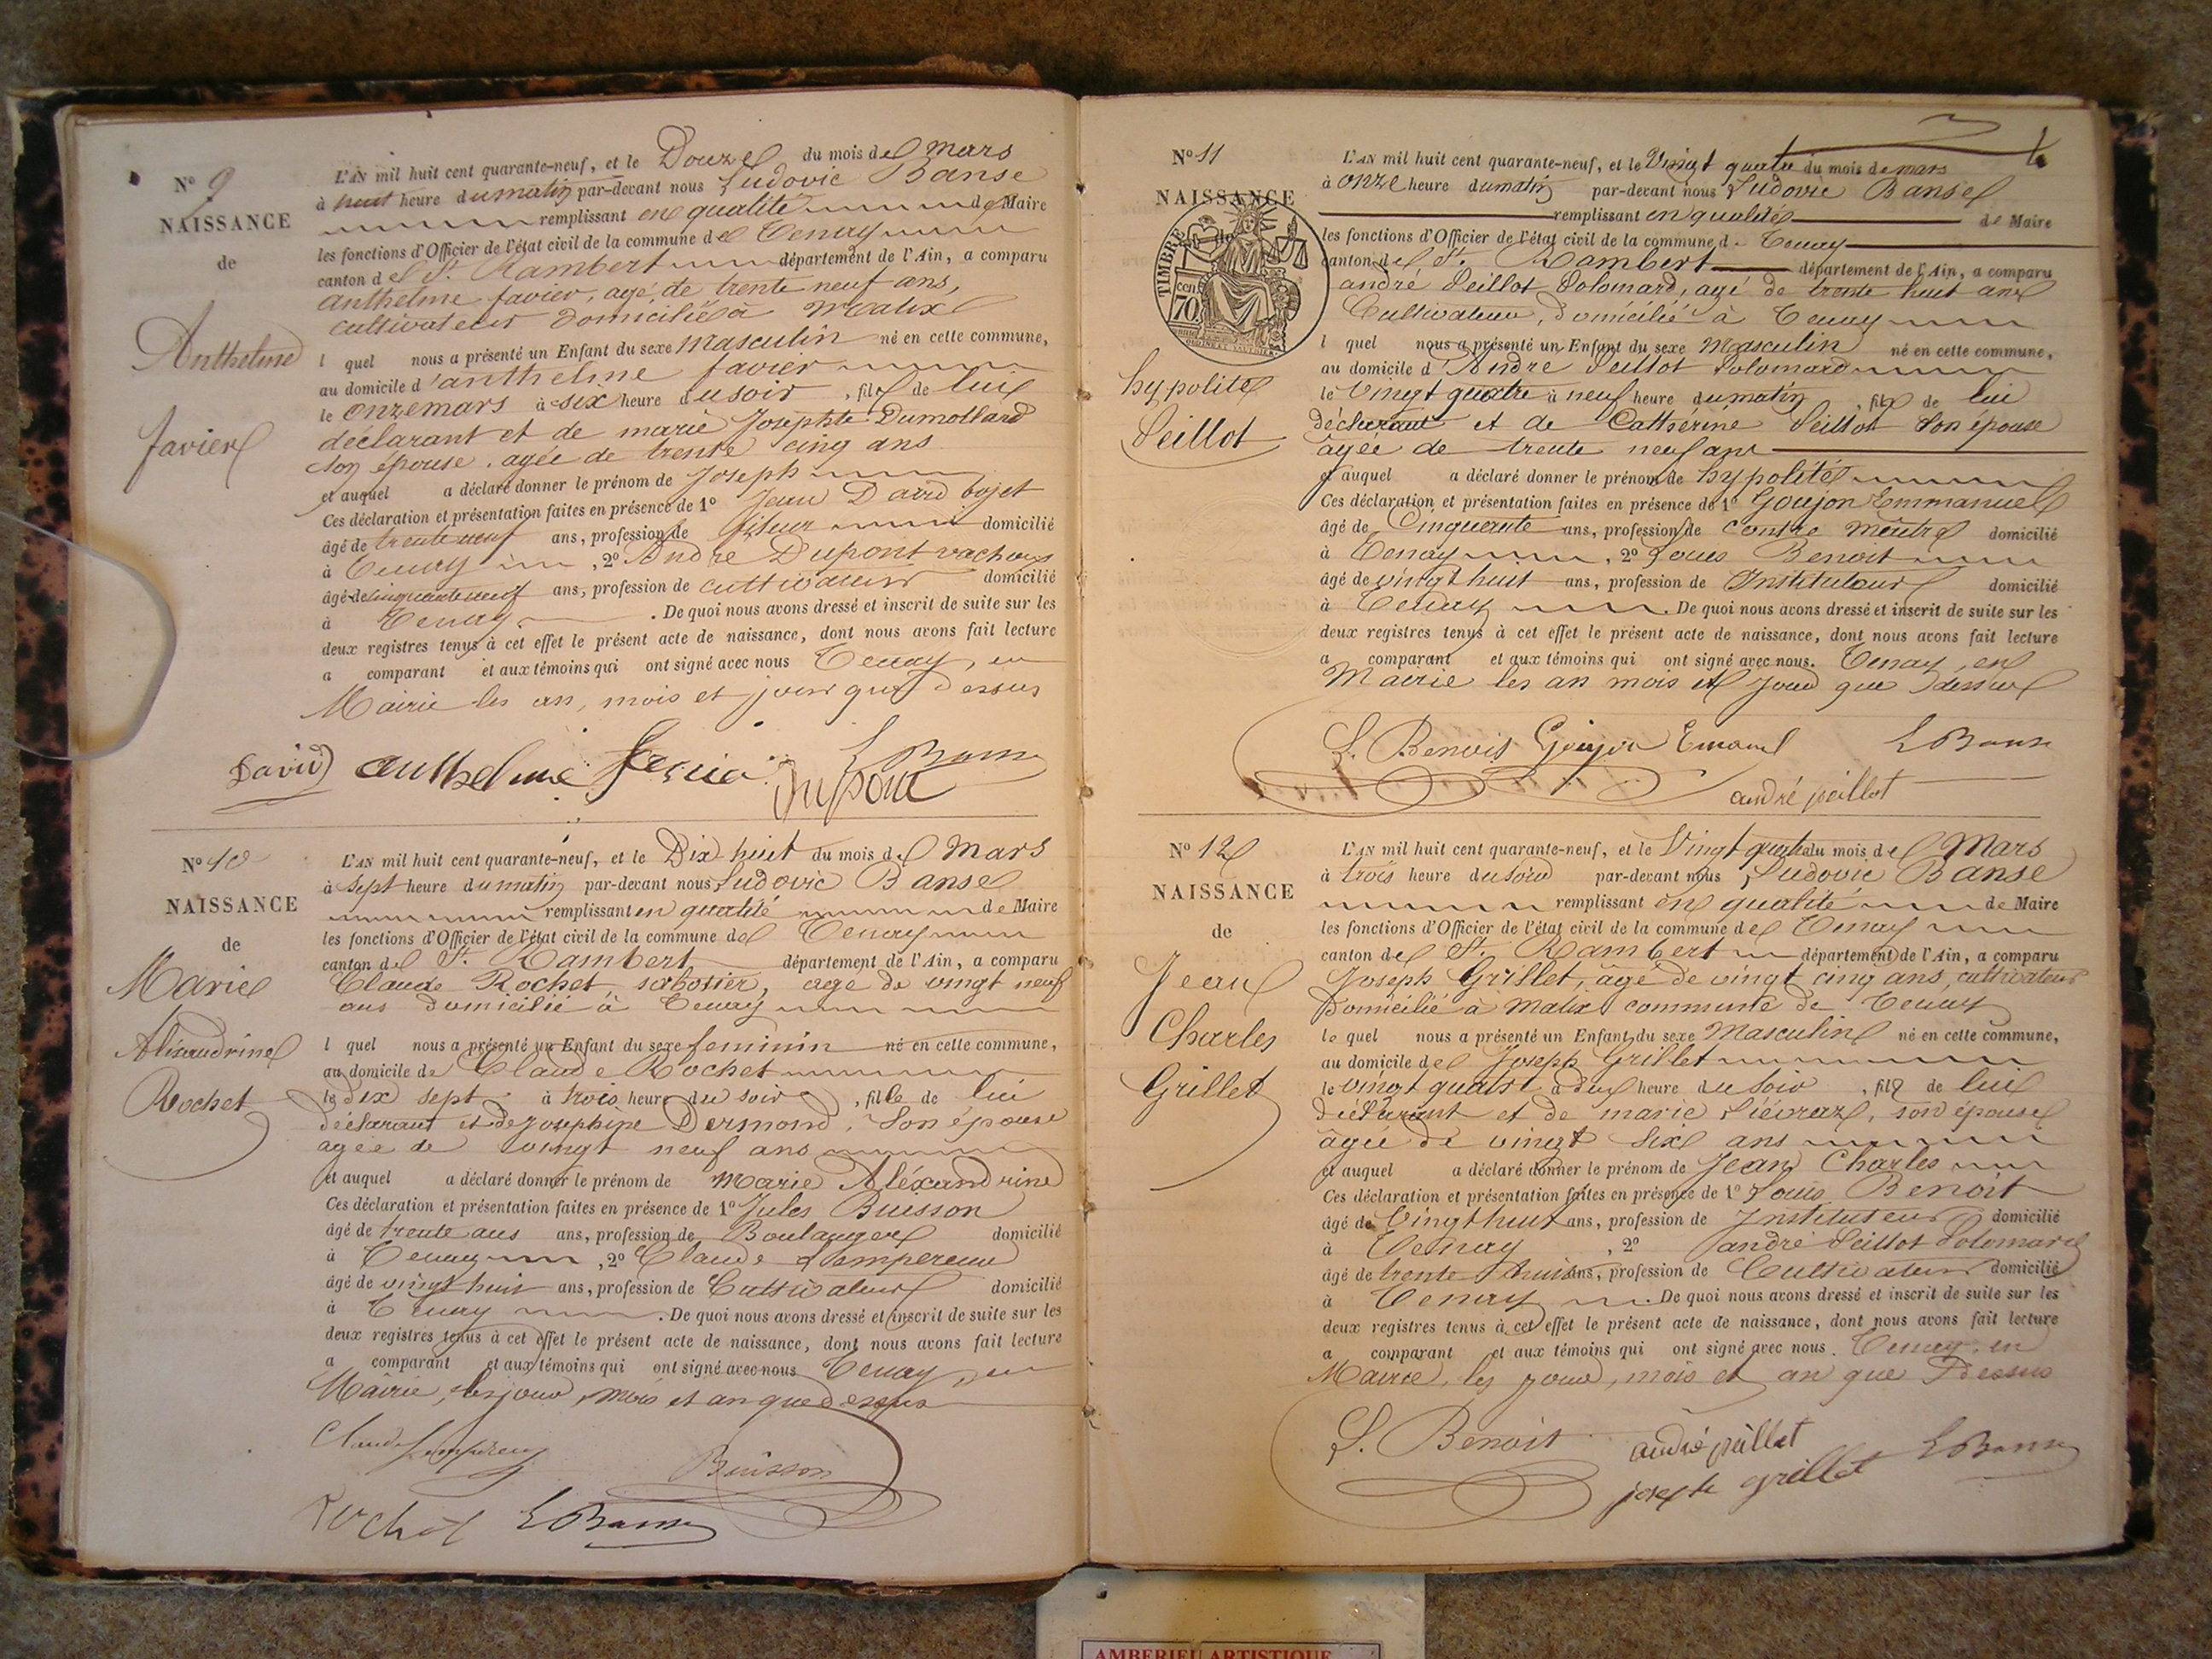 N° 9
NAISSANCE
de
Anthelme
favier
L'AN mil huit cent quarante-neuf, et le Douze du mois de mars
à huit heure du matin par-devant nous Ludovic Banse
remplissant en qualité de Maire
les fonctions d'Officier de l'état civil de la commune de Tenay
canton de St. Rambert département de l'Ain, a comparu
anthelme favier, agé de trente neuf ans,
cultivateur domicilié à Malix
l quel nous a présenté un Enfant du sexe Masculin né en cette commune,
au domicile d'anthelme favier
le onze mars à six heure du soir, fils de lui
déclarant et de marie Josephte Dumollard
son épouse, agée de trente cinq ans
et auquel a déclaré donner le prénom de Joseph
Ces déclaration et présentation faites en présence de 1° Jean David bojet
âgé de trente neuf ans, profession de domicilié
à Tenay, 2° André Dupont vachon
âgé de cinquante neuf ans, profession de cultivateur domicilié
à Tenay. De quoi nous avons dressé et inscrit de suite sur les
deux registres tenus à cet effet le présent acte de naissance, dont nous avons fait lecture
a comparant et aux témoins qui ont signé avec nous Tenay, en
Mairie les an, mois et jour que dessus
David anthelme favier L Banse
Dupont
N° 10
NAISSANCE
de
Marie
Alexandrine
Rochet
L'AN mil huit cent quarante-neuf, et le Dix huit du mois de Mars
à sept heure du matin par-devant nous Ludovic Banse
remplissant en qualité de Maire
les fonctions d'Officier de l'état civil de la commune de Tenay
canton de St. Rambert département de l'Ain, a comparu
Claude Rochet sabotier, age de vingt neuf
ans domicilié à Tenay
l quel nous a présenté un Enfant du sexe feminin né en cette commune,
au domicile de Claude Rochet
le dix sept à trois heure du soir, fille de lui
déclarant et de Josephine Dermond, son épouse
agée de vingt neuf ans
et auquel a déclaré donner le prénom de Marie Aléxandrine
Ces déclaration et présentation faites en présence de 1° Jules Buisson
âgé de trente ans ans, profession de Boulanger domicilié
à Tenay, 2° Claude Lempereur
âgé de vingt huit ans, profession de Cultivateur domicilié
à Tenay. De quoi nous avons dressé et inscrit de suite sur les
deux registres tenus à cet effet le présent acte de naissance, dont nous avons fait lecture
a comparant et aux témoins qui ont signé avec nous Tenay, en
Mairie, les jour, mois et an que dessus
Claude Lempereur Buisson
Rochet L Banse
N° 11
NAISSANCE
de
TIMBRE
70 cen
hypolite
Peillot
L'AN mil huit cent quarante-neuf, et le Vingt quatre du mois de mars
à onze heure du matin par-devant nous Ludovic Banse
remplissant en qualités de Maire
les fonctions d'Officier de l'état civil de la commune d. Tenay
canton de St. Rambert département de l'Ain, a comparu
andré Peillot Polomard, agé de trente huit ans
Cultivateur, domicilié à Tenay
l quel nous a présenté un Enfant du sexe Masculin né en cette commune,
au domicile d'André Peillot Polomard
le Vingt quatre à neuf heure du matin, fils de lui
déclarant et de Cathérine Peillot son épouse
âgée de trente neuf ans
et auquel a déclaré donner le prénom de hypolité
Ces déclaration et présentation faites en présence de 1° Goujon Emmanuel
âgé de Cinquante ans, profession de contre Meitre domicilié
à Tenay, 2° Louis Benoit
âgé de vingt huit ans, profession de Instituteur domicilié
à Tenay. De quoi nous avons dressé et inscrit de suite sur les
deux registres tenus à cet effet le présent acte de naissance, dont nous avons fait lecture
a comparant et aux témoins qui ont signé avec nous. Tenay, en
Mairie les an mois et Jour que dessus
L. Benoit Goujon Emanuel L Banse
andré peillot
N° 12
NAISSANCE
de
Jean
Charles
Grillet
L'AN mil huit cent quarante-neuf, et le Vingt quatre du mois de Mars
à trois heure du soir par-devant nous Ludovic Banse
remplissant en qualité de Maire
les fonctions d'Officier de l'état civil de la commune de Tenay
canton de St. Rambert département de l'Ain, a comparu
Joseph Grillet, âgé de vingt cinq ans, cultivateur
Domicilié à Malix commune de Tenay
le quel nous a présenté un Enfant du sexe Masculin né en cette commune,
au domicile de Joseph Grillet
le vingt quatre à deux heure du soir, fils de lui
déclarant et de marie Piévraz, son épouse
âgée de vingt six ans
et auquel a déclaré donner le prénom de Jean Charles
Ces déclaration et présentation faites en présence de 1° Louis Benoit
âgé de Vingt huit ans, profession de Instituteur domicilié
à Tenay, 2° andré Peillot Polomard
âgé de trente huit ans, profession de Cultivateur domicilié
à Tenay. De quoi nous avons dressé et inscrit de suite sur les
deux registres tenus à cet effet le présent acte de naissance, dont nous avons fait lecture
a comparant et aux témoins qui ont signé avec nous. Tenay, en
Mairie, les jour, mois et an que Dessus
L. Benoit andré peillot L Banse
joseph grillet
AMBERIEU ARTISTIQUE